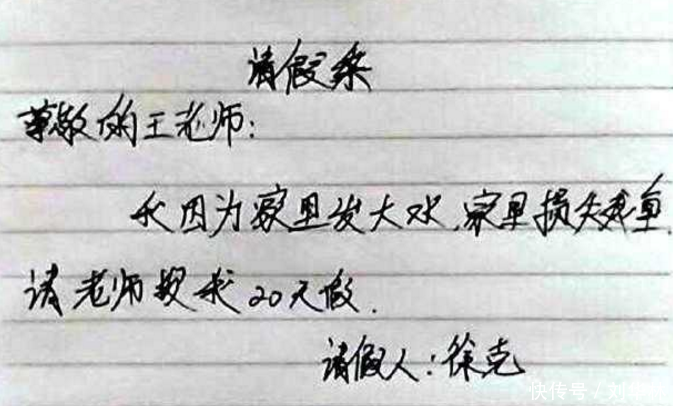 请假条
尊敬的王老师:
我因为家里发大水,家里损失残重,
请老师批我20天假.
请假人:徐克
快传号/刘